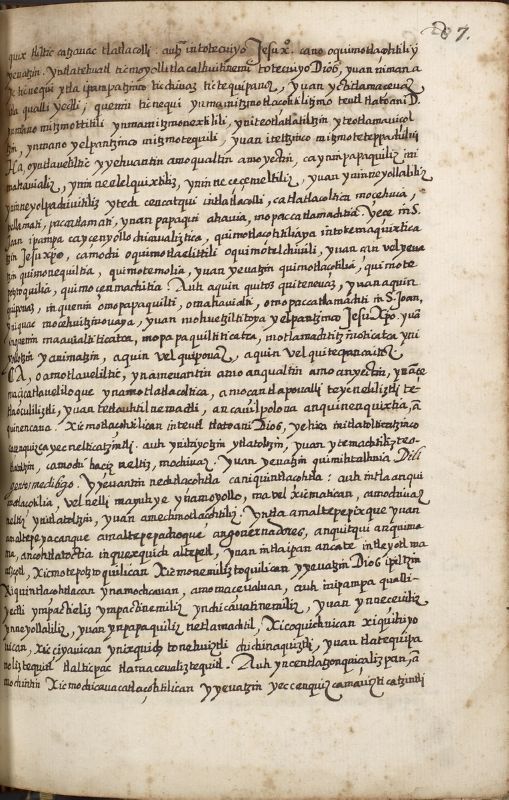 207.
quix tlaltic catzavac tlatlacolli: auh in totecuiyo Jesu xo. cano oquimotlaçohtiliy
yevatzin. yntlatehuatl ticmoyollitlacalhuitinemi totecuiyo Dios, yuan niman a
tla qualli yectli; quenin ticnequi ynmanitzmotlaçohtilizino teutl tlatoani D.
ynmano mitzmottitili ynmamitzmonextilili, yniteotlatlatiltzin yteotlamavicol
tzin, ynmano yelpantzinco mitzmotequili, yuan itetzinco
yyehvantin amo qualtin amo yectin, ca yn inpapaquiliz
maahavializ, ynin neelelquixtiliz, ynin ne
ynin neyolpachiviltiliz ytech cencatqui intlatlacolli, ca tlatlacoltica mocehuia,
pacatlamati, ynan papaqui ahavia, mopaccatlamachtia. yece in S.
Joan ipampa cayçenyollochicavaliztica, quimotlaçohtiliaya intotemaquixtica
tzin Jesu Xpo, camochi oquimottaelittili oquimotelchivili, yuan çan vel yeva
tzin quimonequiltia, quimotemolia, yuan yevatzin quimotlaçohtilia, quimote
potztoquilia, quimocenmachitia. Auh aquin quitoz quitenevaz, ynan aquin
quiponaz, inquenin omopapaquilti, omahavialti, omopaccatlamachti in S. Joan,
yniquac mocehuitzinovaya, yuan mohuetziltitoya yelpantzinco Jesu Xpo. yuã
inquenin maavialtiticatca, mopapaquiltiticatca, motlamachtitzinoticatca yni
yollotzin yanimatzin, aquin vel quiponaz, aquin vel quitepanaittaz
A, o amotlaveliltic, ynamevantin amo anqualtin amo anyectin,
maçicatlaveliloque ynamotlatlacoltica, amocantlapovalli teyenehiliztli te
tlaocoliliztli, yuan teotlauhtilnemactli, ancauilpolova anquinenquixtia, ã
quinencaua. Xicmotlaçohtilican inteutl tlatoani Dios, yehica initlatoltzinco
cacenquizca yec neltica tzintli. auh yniihiyotzin ytlatoltzin, yuan ytemachtiliz teo
tlatoltzin, camochi haciz neltiz, mochivaz. yuan yevatzin quimihtalhuia Dili
gentes me diligo. Yyevantin nechtlaçohtla caniquintlaçohtla: auh intla anqui
motlaçohtlilia, vel nelli mayuhye ynamoyollo, ma vel xicmatican, camochivaz
neltiz ynitlatoltzin, yuan amechmotlaçohtiliz. Yntla amaltepepixque yuan
amaltepeyacanque amaltepepachoque angovernadores, anquitqui anquimo
ma, ancohtlatoctia inquexquich altepetl, yuan intlaipan ancate intleyotl ma
viçotl, Xicmotepotztoquilican Xicmonemiliztoquilican yyevatzin Dios ipiltzin
Xiquintlaçohtlacan ynamochcavan, amomacevalvan, auh inipampa qualli
yectli ympacyeliz ympacnemiliz yn chicavacanemiliz, yuan ynnecevilliz
ynneyollaliliz, yuan ynpapaquiliz netlamachtil, Xicoquichvican xiquihiyo
vican, Xicciyavican ynixquich tonehuiztli chichinaquiztli, yuan tlatequipa
noliztequitl tlalticpac tlamaceualiztequitl. Auh yn centlatzonquiçalizpan, ã
mochintin Xicmochicavacatlaçohtilican yyevatzin yeccenquizcamaviztic atzintli